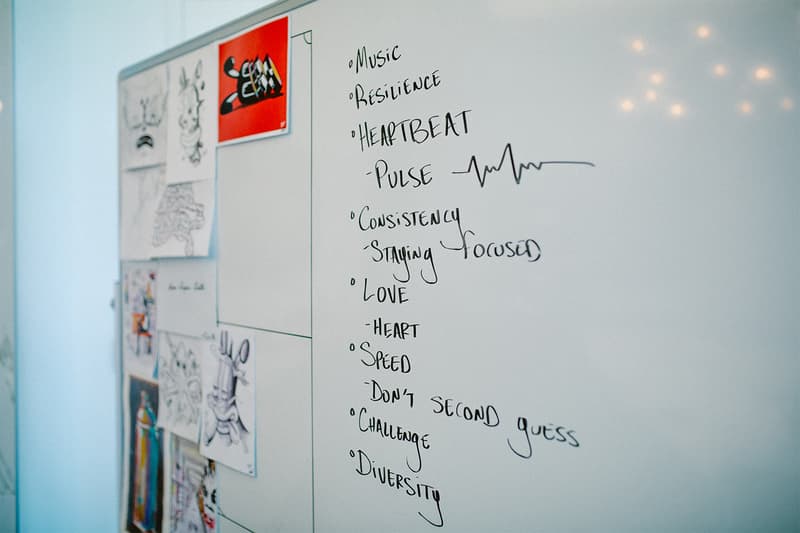 ° Music
° Resilience
° Heartbeat
- Pulse
° Consistency
- Staying focused
° Love
- Heart
° Speed
- Don't second guess
° Challenge
° Diversity